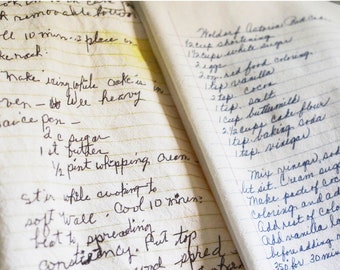 A removable bottom
Cool 10 min. place on
cake rack.
Make icing while cake is in
oven — Use heavy
sauce pan —
2 c sugar
1 st butter
1/2 pint whipping cream
Stir while cooking to
soft ball. Cool 10 min.
beat to spreading
consistency. Put top
spread
Waldorf Astoria Red Cake
1/2 cup shortening
1 1/2 cup white sugar
2 eggs
2 oz red food coloring
1 tsp vanilla
2 tsp cocoa
1 tsp salt
1 cup buttermilk
2 1/2 cups cake flour
1 tsp baking soda
1 tsp vinegar
Mix vinegar, soda
let sit. Cream sugar
Make paste of cocoa
coloring and add
Add rest of color
Add vanilla
before adding
350 for 30 min